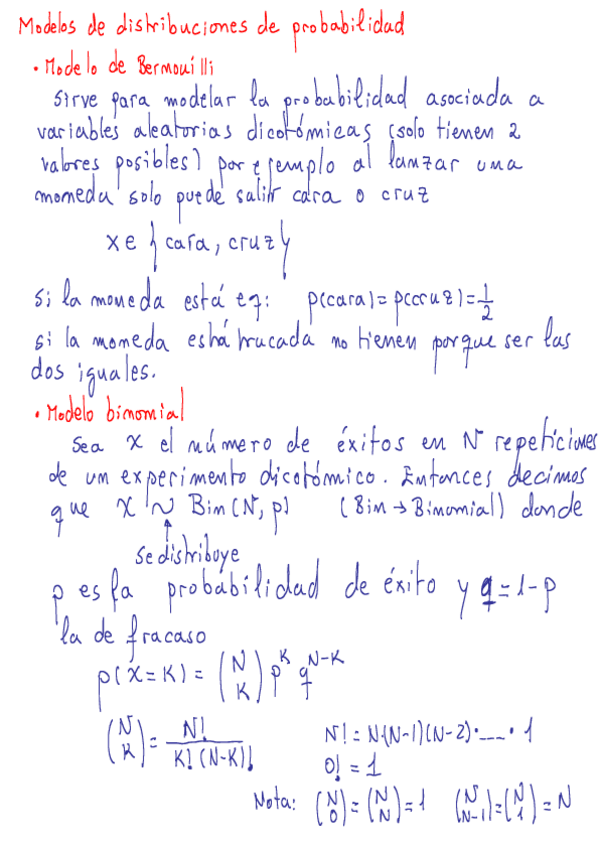 Modelos de distribuciones de probabilidad
• Modelo de Bernouilli
Sirve para modelar la probabilidad asociada a
variables aleatorias dicotómicas (solo tienen 2
valores posibles) por ejemplo al lanzar una
moneda solo puede salir cara o cruz
x ∈ {cara, cruz}
Si la moneda está eq: p(cara) = p(cruz) = 1/2
si la moneda está trucada no tienen porque ser las
dos iguales.
• Modelo binomial
Sea x el número de éxitos en N repeticiones
de un experimento dicotómico. Entonces decimos
que x ~ Bin(N, p) (Bin → Binomial) donde
↑
se distribuye
p es la probabilidad de éxito y q = 1 - p
la de fracaso
p(x = K) = (N K) p^K q^(N-K)
(N K) = N! / K! (N-K)! N! = N·(N-1)(N-2)·....· 1
0! = 1
Nota: (N 0) = (N N) = 1 (N N-1) = (N 1) = N